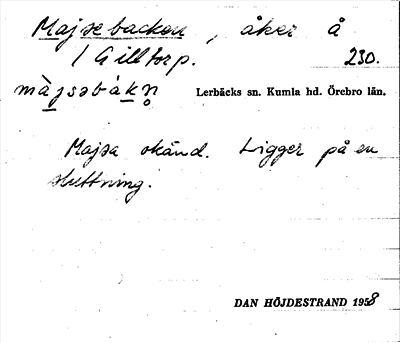 Majsebacken, åker å
/ Gilltorp. 230.
màjsəbákn̥
Lerbäcks sn. Kumla hd. Örebro län.
Majsa okänd. Ligger på en
sluttning.
DAN HÖJDESTRAND 1958